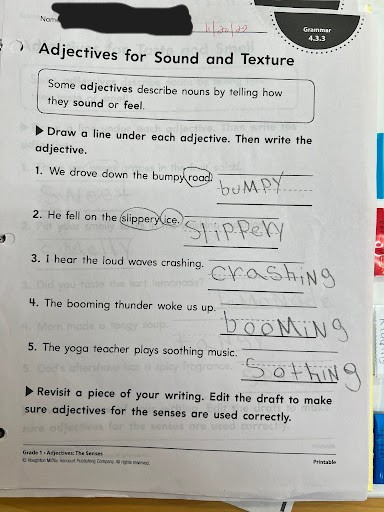 Name
11/22/22
Grammar
4.3.3
Adjectives for Sound and Texture
Some adjectives describe nouns by telling how
they sound or feel.
▶ Draw a line under each adjective. Then write the
adjective.
1. We drove down the bumpy road.
bumpy
2. He fell on the slippery ice.
Slippery
3. I hear the loud waves crashing.
crashing
4. The booming thunder woke us up.
booming
5. The yoga teacher plays soothing music.
Sothing
▶ Revisit a piece of your writing. Edit the draft to make
sure adjectives for the senses are used correctly.
Grade 1 • Adjectives: The Senses
© Houghton Mifflin Harcourt Publishing Company. All rights reserved.
Printable